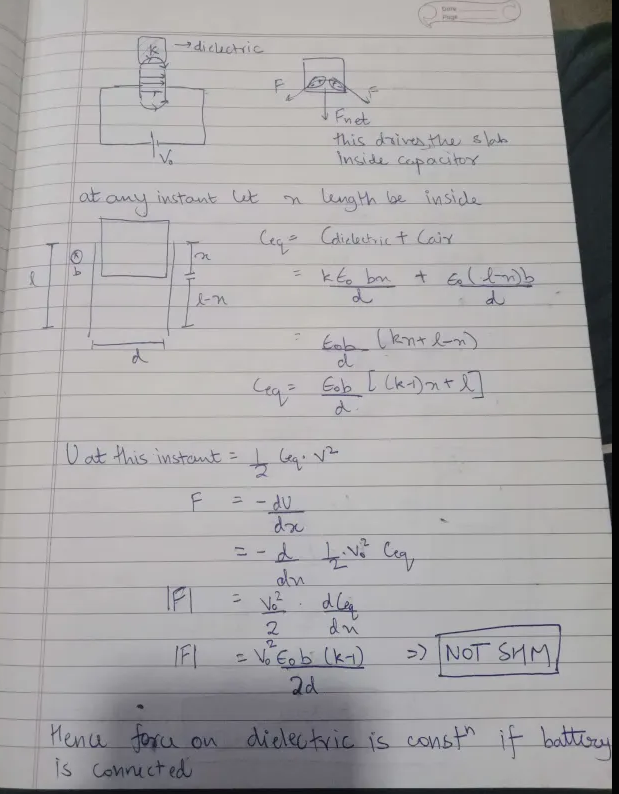 Date
Page
K → dielectric
V₀
F F
Fnet
this drives the slab
Inside capacitor
at any instant let x length be inside
l b x l-x d
Ceq = Cdielectric + Cair
= kε₀ bx/d + ε₀(l-x)b/d
= ε₀b/d (kx + l-x)
Ceq = ε₀b/d [(k-1)x + l]
U at this instant = 1/2 Ceq. V²
F = -dU/dx
= - d/dx 1/2 . V₀² Ceq
|F| = V₀²/2 . dCeq/dx
|F| = V₀² ε₀b (k-1)/2d => NOT SHM
Hence force on dielectric is constⁿ if battery
is connected